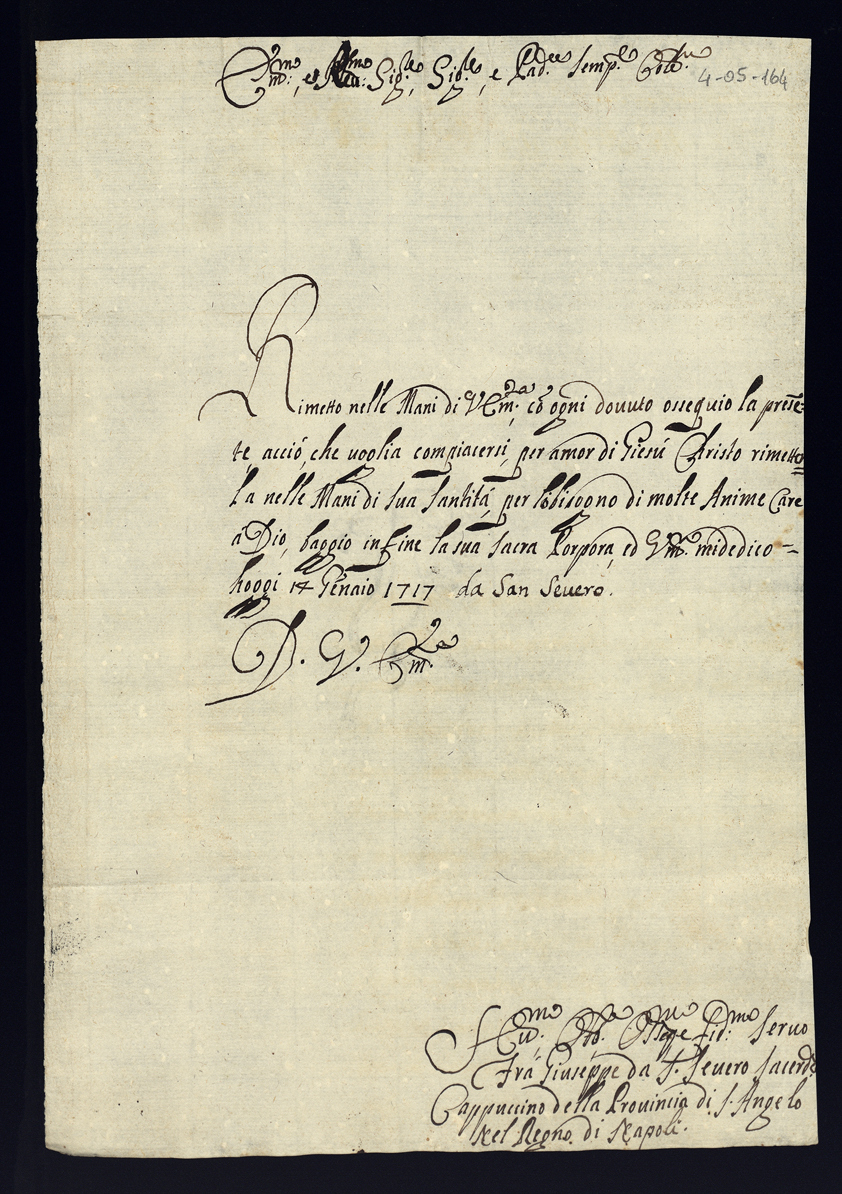 Em:mo, e Rev:mo Sig:re, Sig:re, e Pad:re semp:e Col:mo
4-05-164
Rimetto nelle Mani di V Em:za, cō ogni douuto ossequio la presē=
te, acciò, che uoglia compiacersi, per amor di Giesù Christo rimetter=
la nelle Mani di Sua Santità, per lobisogno di molte Anime Care
à Dio, baggio infine la sua sacra Porpora, ed Vm:e midedico =
hoggi 14 Gennaio 1717 da San Seuero.
D. V. Em:za
Seruo
Frà Giuseppe da S. Seuero Sacerd:e
Cappuccino della Prouincia di S. Angelo
Nel Regno di Napoli.